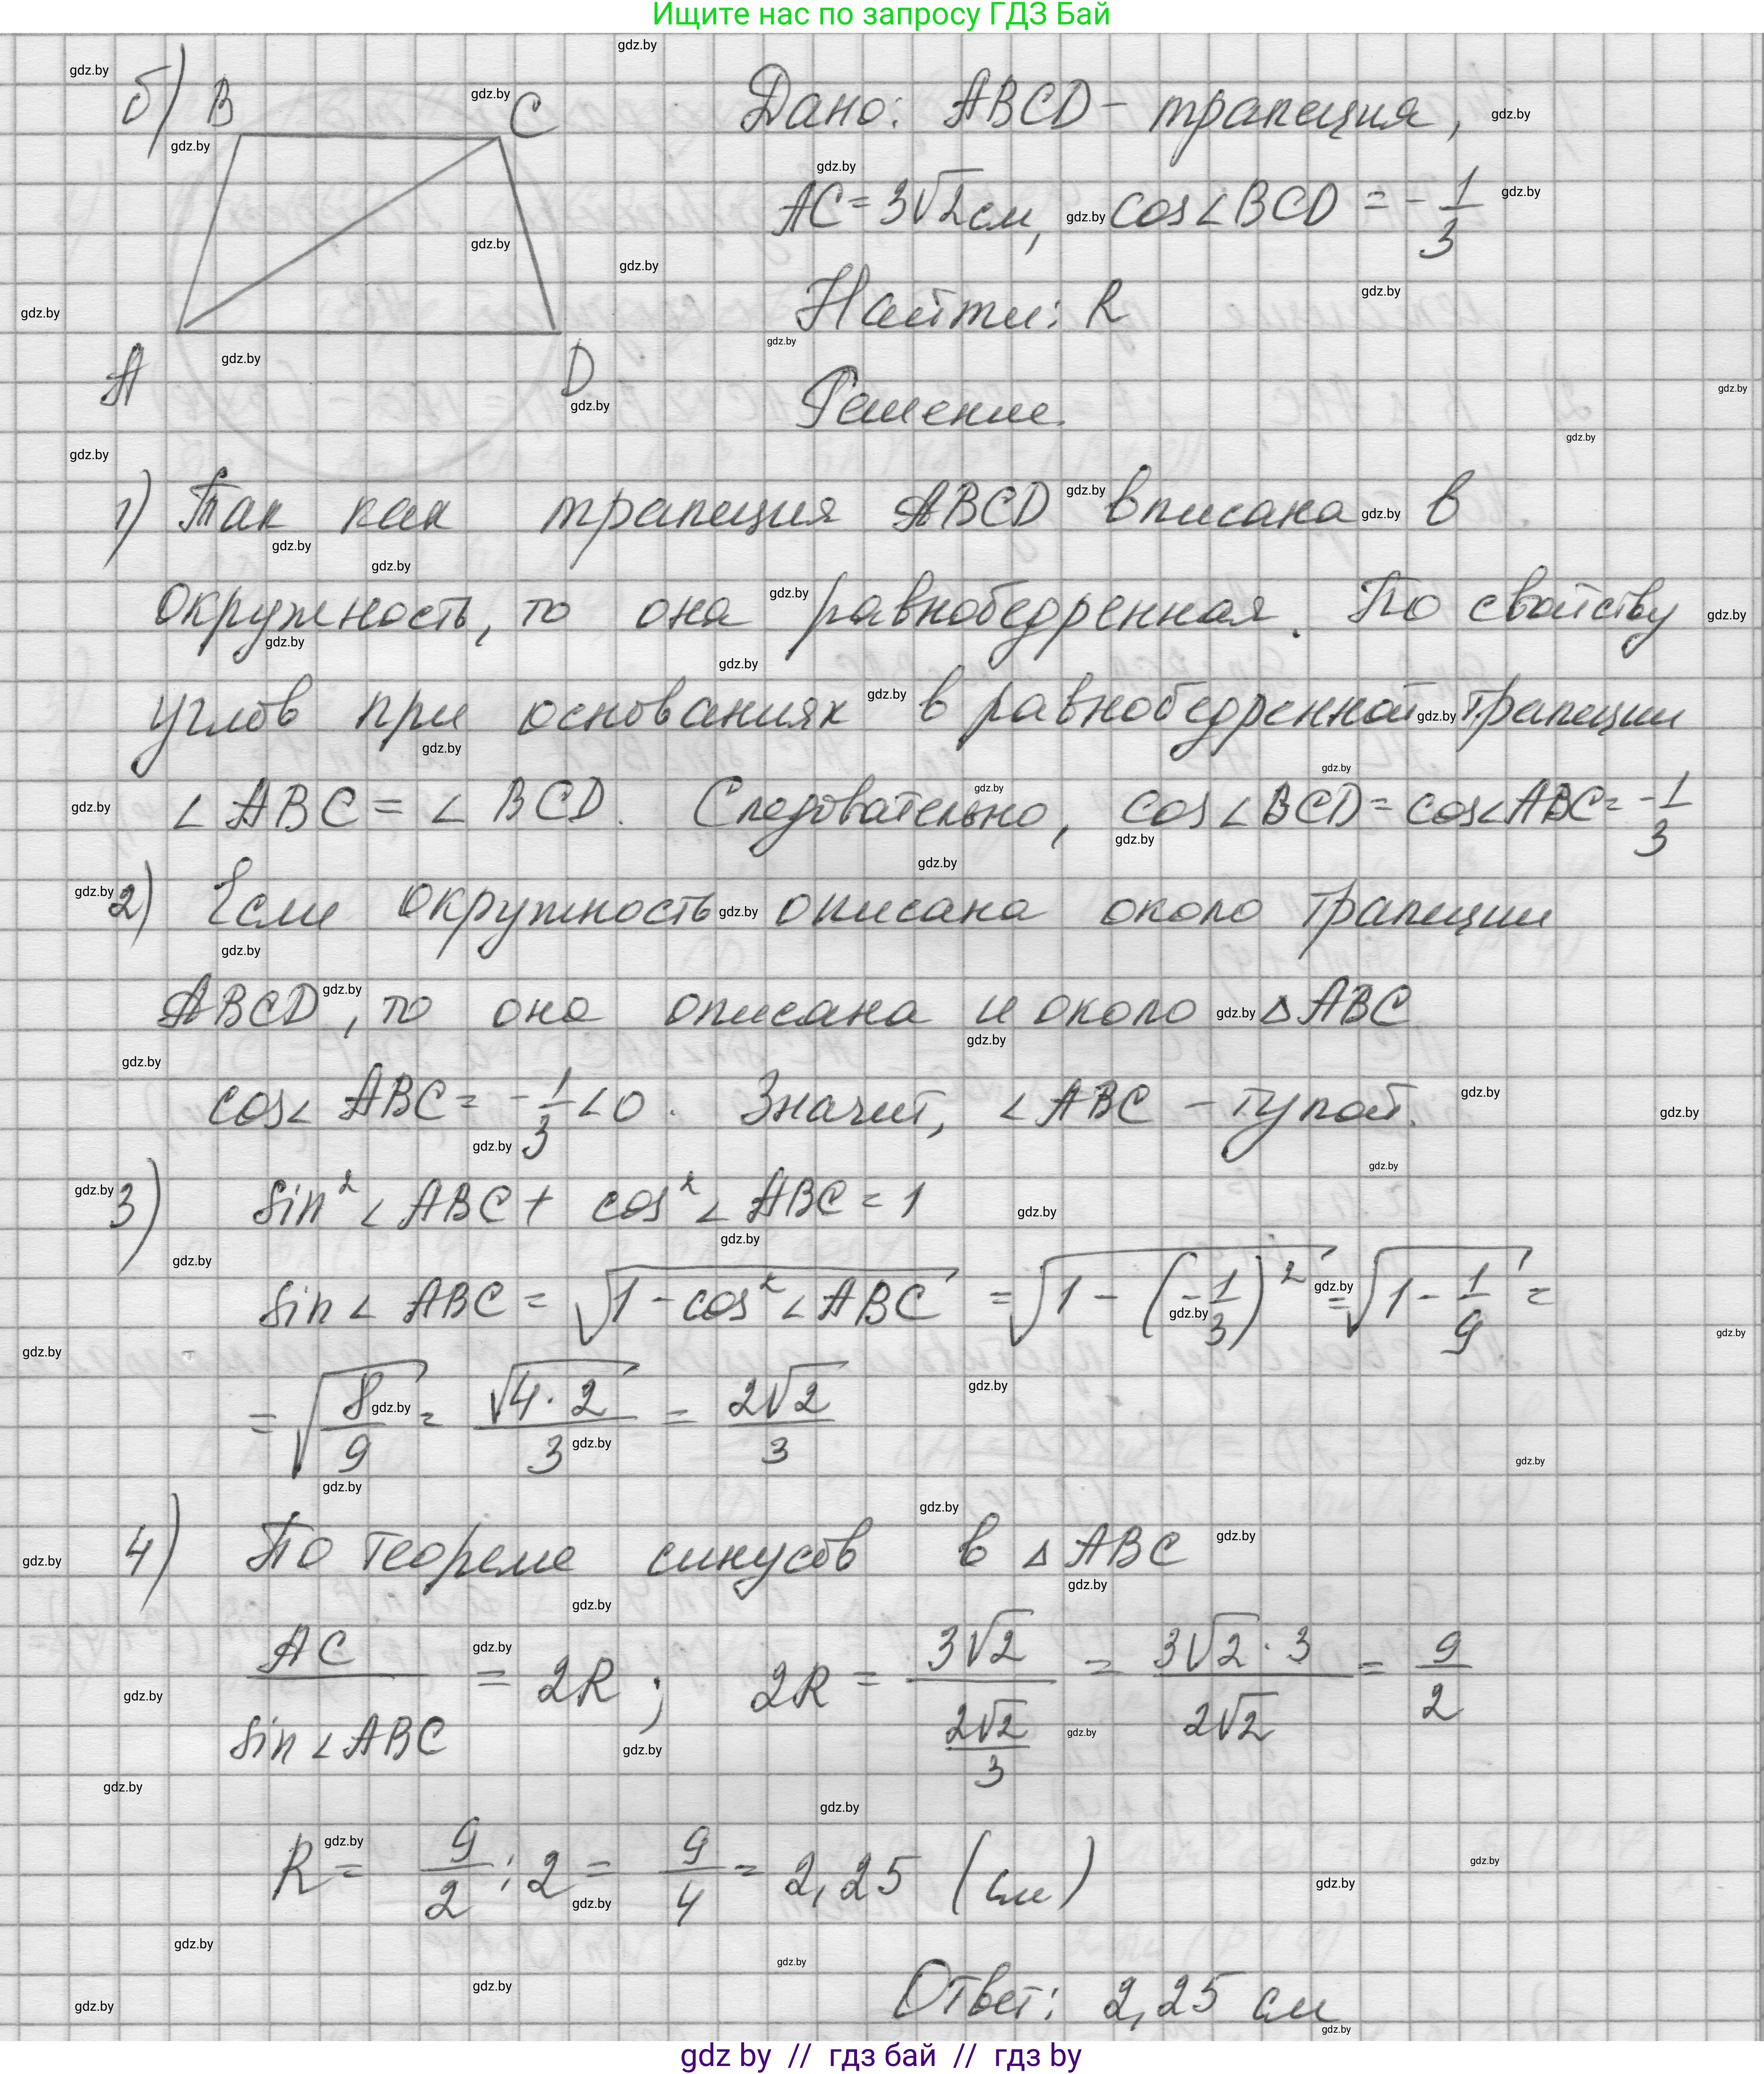 Ищите нас по запросу ГДЗ Бай
б) B C A D
Дано: ABCD – трапеция,
AC = 3√2 см, cos∠BCD = -1/3
Найти: R
Решение.
1) Так как трапеция ABCD вписана в
окружность, то она равнобедренная. По свойству
углов при основаниях в равнобедренной трапеции
∠ABC = ∠BCD. Следовательно, cos∠BCD = cos∠ABC = -1/3
2) Если окружность описана около трапеции
ABCD, то она описана и около △ABC
cos∠ABC = -1/3 < 0. Значит, ∠ABC – тупой.
3) sin²∠ABC + cos²∠ABC = 1
sin∠ABC = √(1 - cos²∠ABC) = √(1 - (-1/3)²) = √(1 - 1/9) =
= √(8/9) = √(4·2)/3 = 2√2/3
4) По теореме синусов в △ABC
AC/sin∠ABC = 2R; 2R = 3√2/(2√2/3) = 3√2·3/2√2 = 9/2
R = 9/2 : 2 = 9/4 = 2,25 (см)
Ответ: 2,25 см
gdz.by
gdz by // гдз бай // гдз by